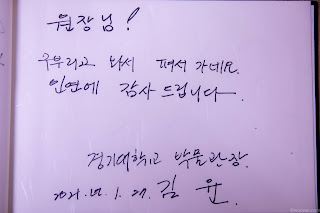 원장님!
구부리고 와서 펴서 가네요.
인연에 감사 드립니다.
경기대학교 박물관장.
2021. 1. 27. 김 윤